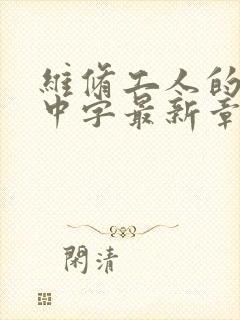 維修工人的
中字最新章
閑清